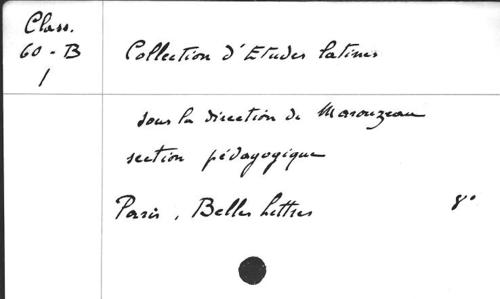 Class.
60 - B
1
Collection d'Etudes latines
sous la direction de Marouzeau
section pédagogique
Paris, Belles Lettres 8°